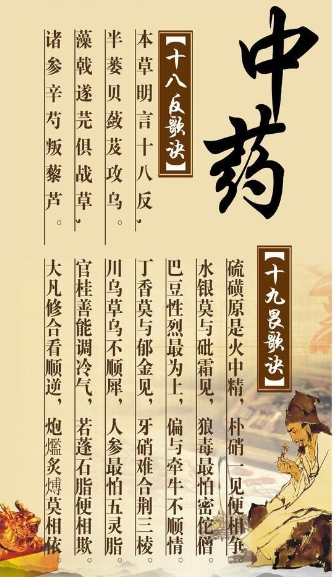 中药
【十八反歌诀】
本草明言十八反，
半蒌贝蔹芨攻乌。
藻戟遂芫俱战草，
诸参辛芍叛藜芦。
【十九畏歌诀】
硫磺原是火中精，朴硝一见便相争。
水银莫与砒霜见，狼毒最怕密佗僧。
巴豆性烈最为上，偏与牵牛不顺情。
丁香莫与郁金见，牙硝难合荆三棱。
川乌草乌不顺犀，人参最怕五灵脂。
官桂善能调冷气，若蓬石脂便相欺。
大凡修合看顺逆，炮爁炙煿莫相依。